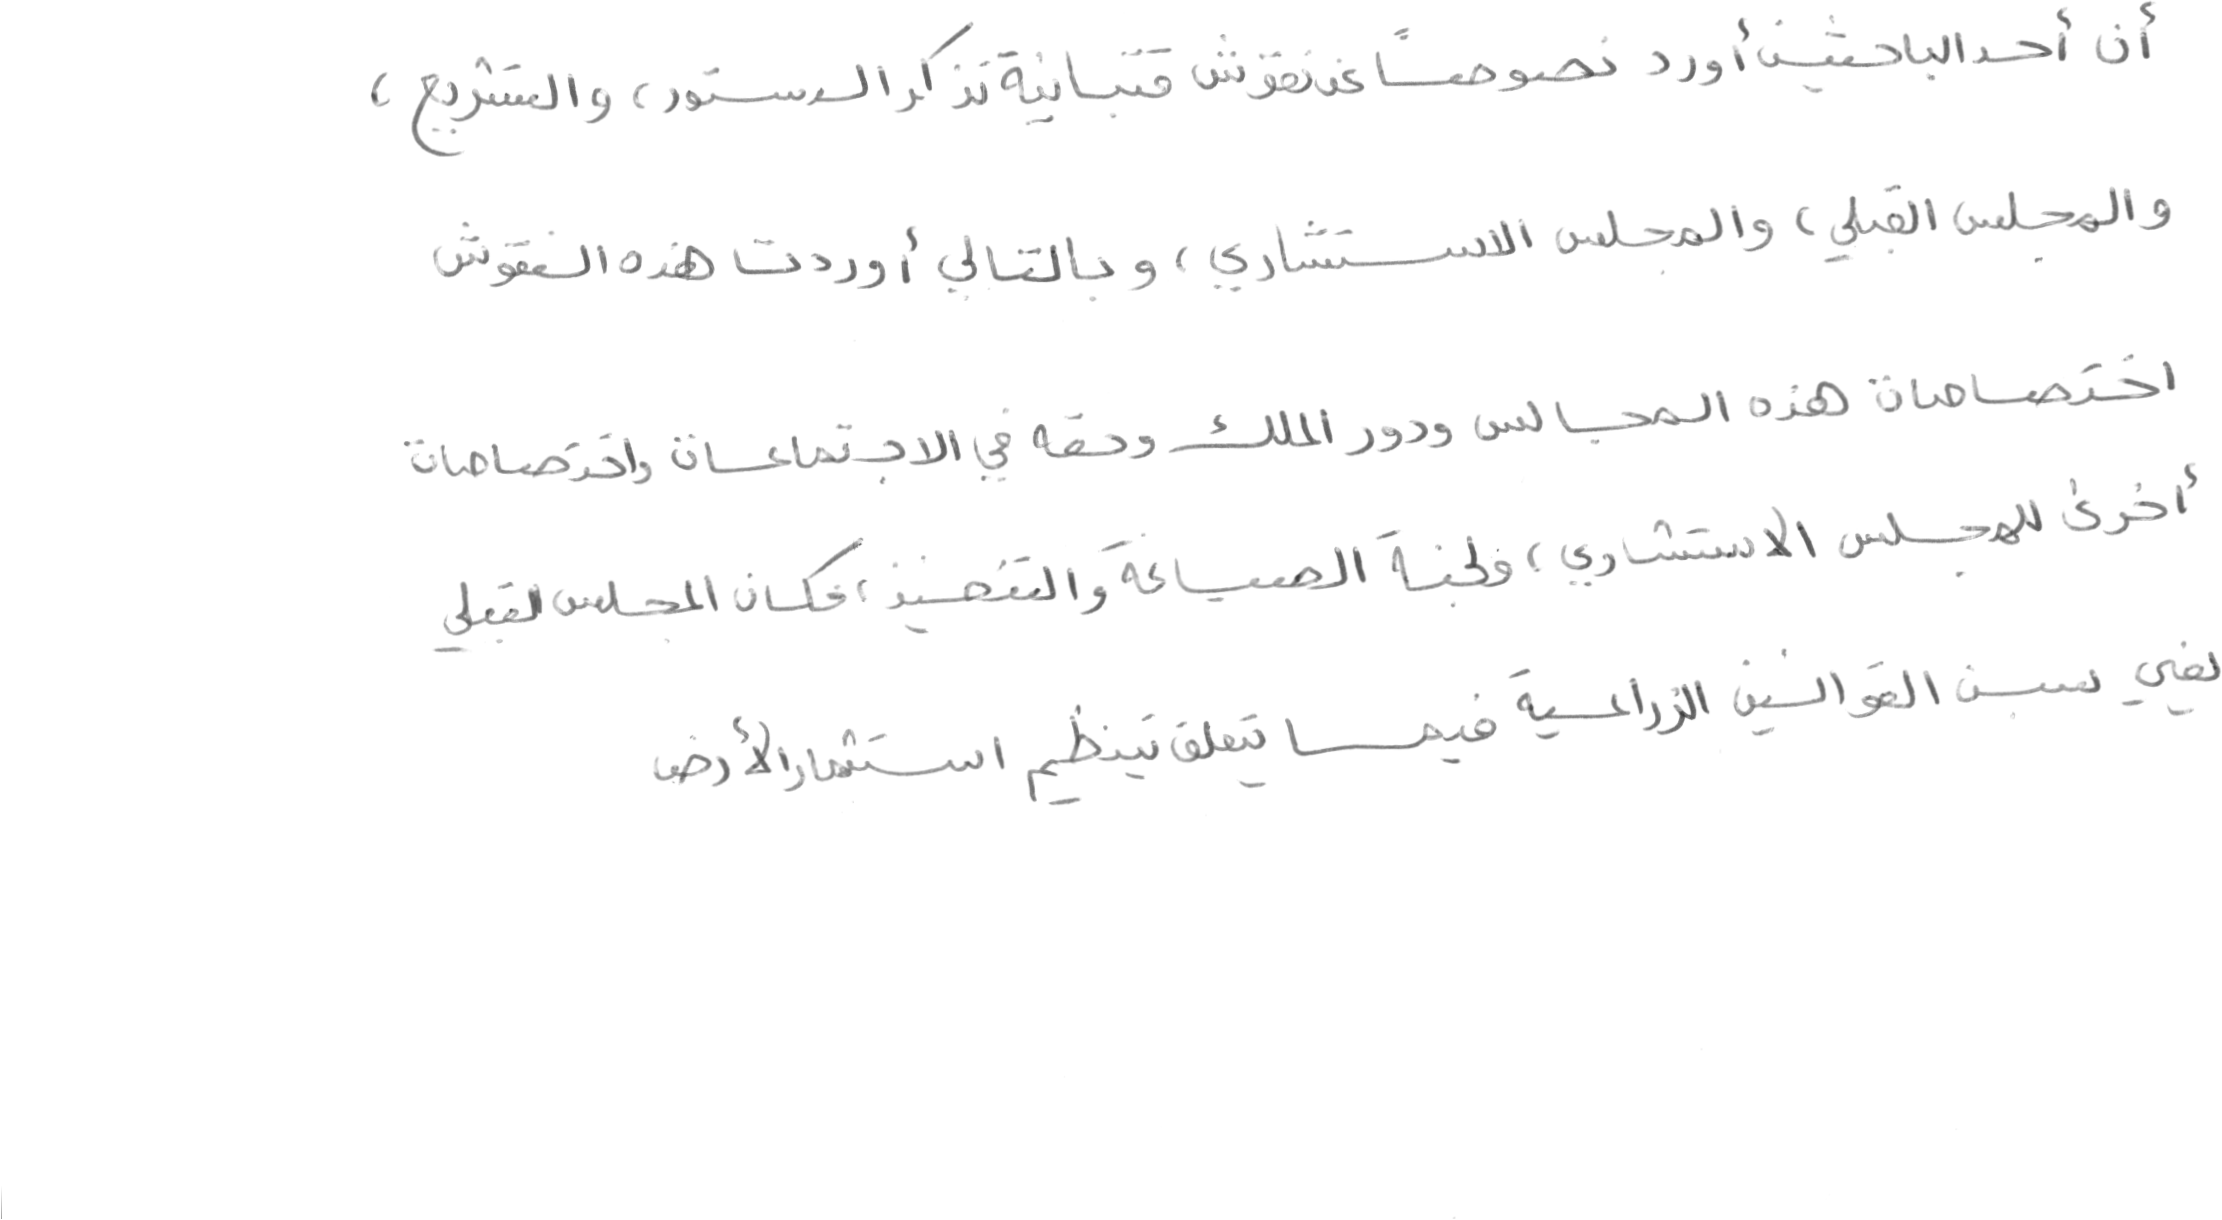 أن أحد الباحثين أورد نصوصاً عن نقوش قتبانية تذكر الدستور، والتشريع،
والمجلس القبلي، والمجلس الاستشاري، وبالتالي أوردت هذه النقوش
اختصاصات هذه المجالس ودور الملك وحقه في الاجتماعات واختصاصات
أخرى للمجلس الاستشاري، ولجنة الصياغة والتنفيذ، فكان المجلس القبلي
يفتي بسن القوانين الزراعية فيما يتعلق بتنظيم استثمار الأرض